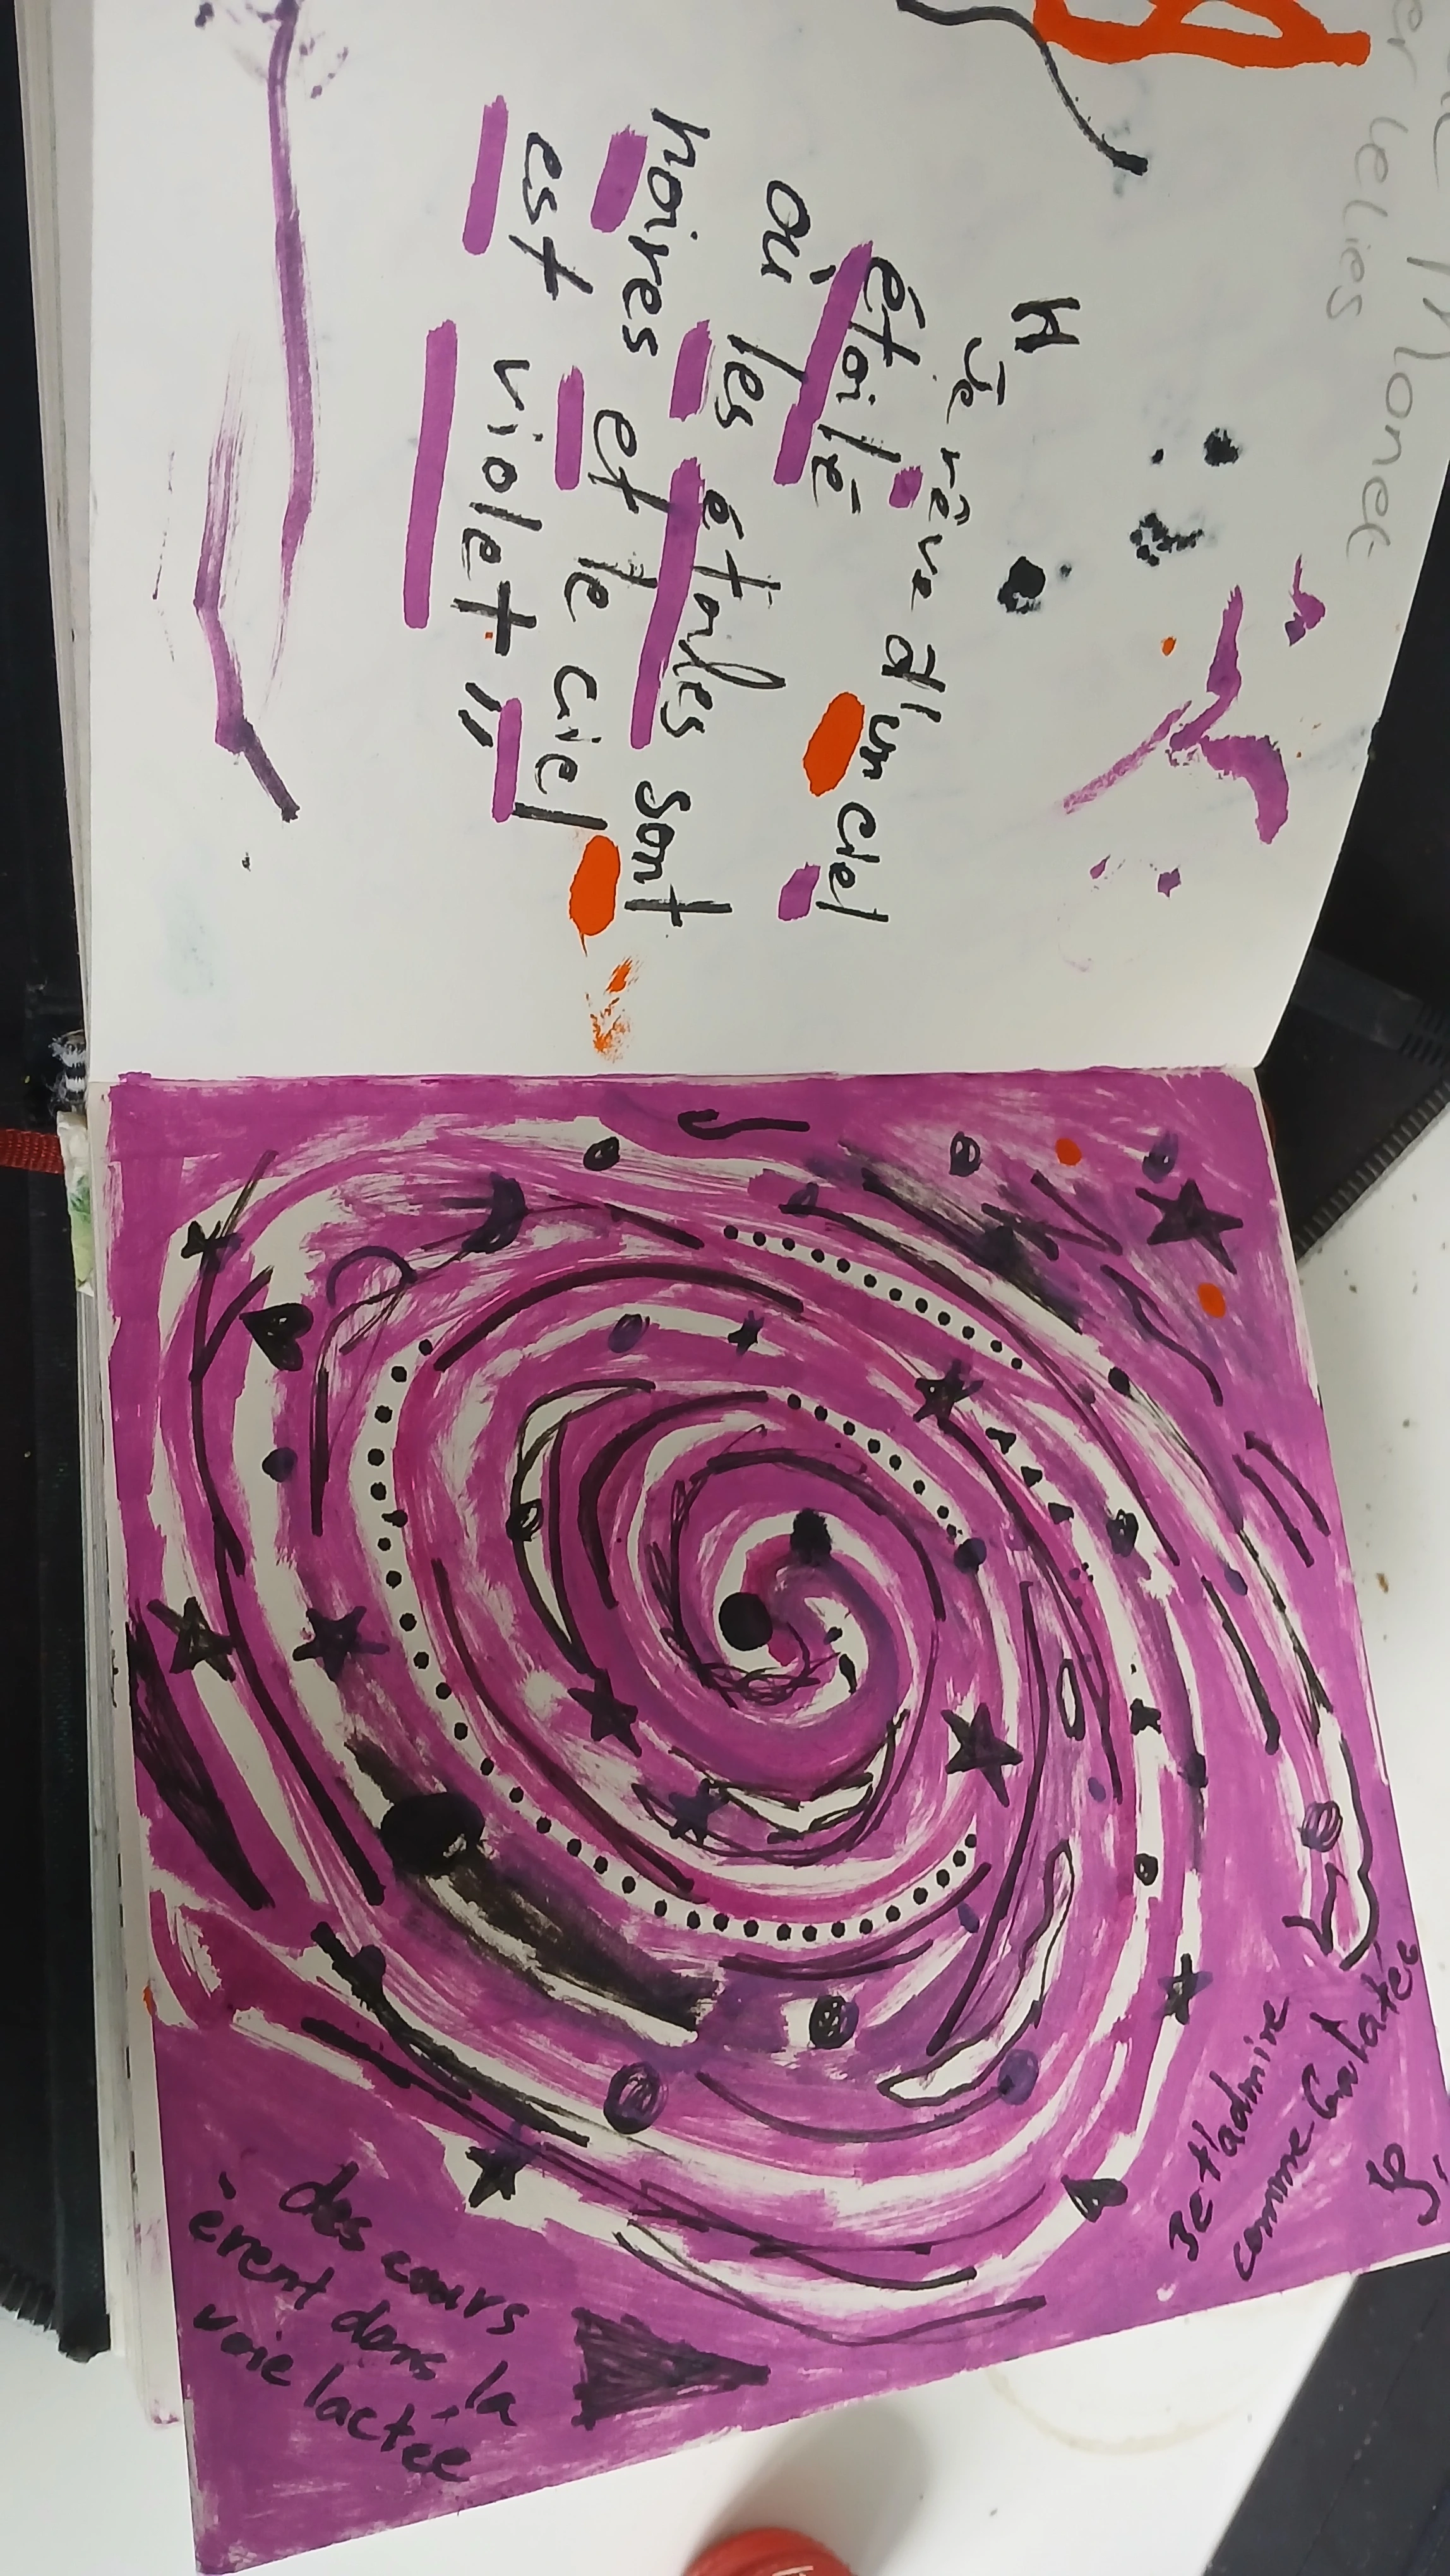 " Je rêve d'un ciel
étoilé
où les étoiles sont
noires et le ciel
est violet "
Je t'admire
comme Galatée
des cœurs
èrent dans la
voie lactée